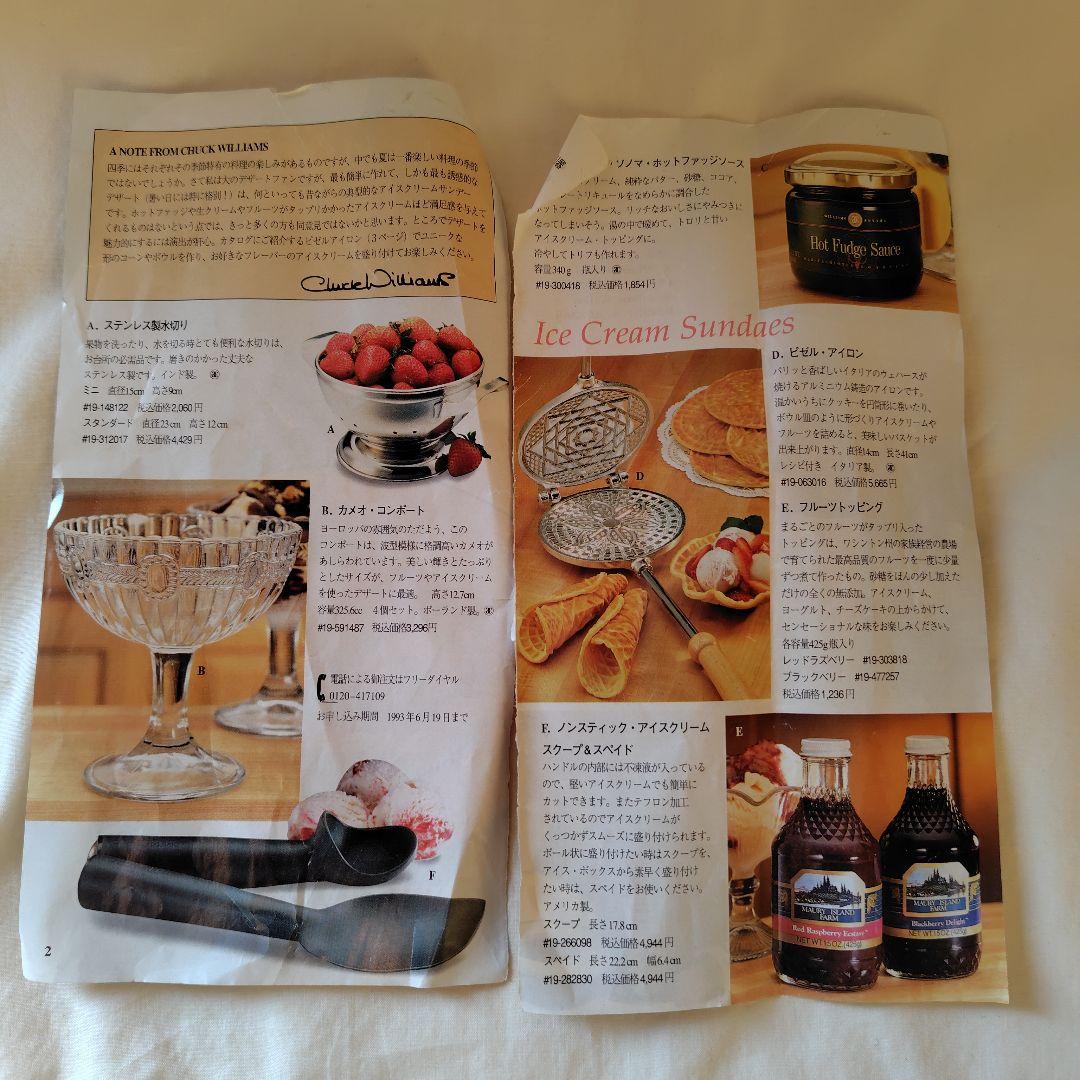 A NOTE FROM CHUCK WILLIAMS
四季にはそれぞれその季節特有の料理の楽しみがあるものですが、中でも夏は一番楽しい料理の季節
ではないでしょうか。さて私は大のデザートファンですが、最も簡単に作れて、しかも最も誘惑的な
デザート（暑い日には特に格別！）は、何といっても昔ながらの典型的なアイスクリームサンデー
です。ホットファッジや生クリームやフルーツがタップリかかったアイスクリームほど満足感を与えて
くれるものはないという点では、きっと多くの方も同意見ではないかと思います。ところでデザートを
魅力的にするには演出が肝心。カタログにご紹介するピゼルアイロン（3ページ）でユニークな
形のコーンやボウルを作り、お好きなフレーバーのアイスクリームを盛り付けてお楽しみください。
Chuck Williams
A. ステンレス製水切り
果物を洗ったり、水を切る時とても便利な水切りは、
お台所の必需品です。磨きのかかった丈夫な
ステンレス製です。インド製。
ミニ 直径15cm 高さ9cm
#19-148122 税込価格2,060円
スタンダード 直径23cm 高さ12cm
#19-312017 税込価格4,429円
A
B. カメオ・コンポート
ヨーロッパの雰囲気のただよう、この
コンポートは、波型模様に格調高いカメオが
あしらわれています。美しい輝きとたっぷり
としたサイズが、フルーツやアイスクリーム
を使ったデザートに最適。 高さ12.7cm
容量325.6cc 4個セット。ポーランド製。
#19-591487 税込価格3,296円
B
電話による御注文はフリーダイヤル
0120-417109
お申し込み期間 1993年6月19日まで
F
2
・ソノマ・ホットファッジソース
クリーム、純粋なバター、砂糖、ココア、
レートリキュールをなめらかに調合した
ホットファッジソース。リッチなおいしさにやみつきに
なってしまいそう。湯の中で暖めて、トロリと甘い
アイスクリーム・トッピングに。
冷やしてトリフも作れます。
容量340g 瓶入り
#19-300418 税込価格1,854円
C
Hot Fudge Sauce
Ice Cream Sundaes
D
D. ピゼル・アイロン
パリッと香ばしいイタリアのウェハースが
焼けるアルミニウム鋳造のアイロンです。
温かいうちにクッキーを円筒形に巻いたり、
ボウル皿のように形づくりアイスクリームや
フルーツを詰めると、美味しいバスケットが
出来上がります。直径14cm 長さ41cm
レシピ付き イタリア製。
#19-063016 税込価格5,665円
E. フルーツトッピング
まるごとのフルーツがタップリ入った
トッピングは、ワシントン州の家族経営の農場
で育てられた最高品質のフルーツを一度に少量
ずつ煮て作ったもの。砂糖をほんの少し加えた
だけの全くの無添加。アイスクリーム、
ヨーグルト、チーズケーキの上からかけて、
センセーショナルな味をお楽しみください。
各容量425g瓶入り
レッドラズベリー #19-303818
ブラックベリー #19-477257
税込価格1,236円
F. ノンスティック・アイスクリーム
スクープ&スペイド
ハンドルの内部には不凍液が入っている
ので、堅いアイスクリームでも簡単に
カットできます。またテフロン加工
されているのでアイスクリームが
くっつかずスムーズに盛り付けられます。
ボール状に盛り付けたい時はスクープを、
アイス・ボックスから素早く盛り付け
たい時は、スペイドをお使いください。
アメリカ製。
スクープ 長さ17.8cm
#19-266098 税込価格4,944円
スペイド 長さ22.2cm 幅6.4cm
#19-282830 税込価格4,944円
E
MAURY ISLAND
FARM
Red Raspberry Ecstasy
NET WT 15 OZ. (425g)
MAURY ISLAND
FARM
Blackberry Delight
NET WT 15 OZ. (425g)